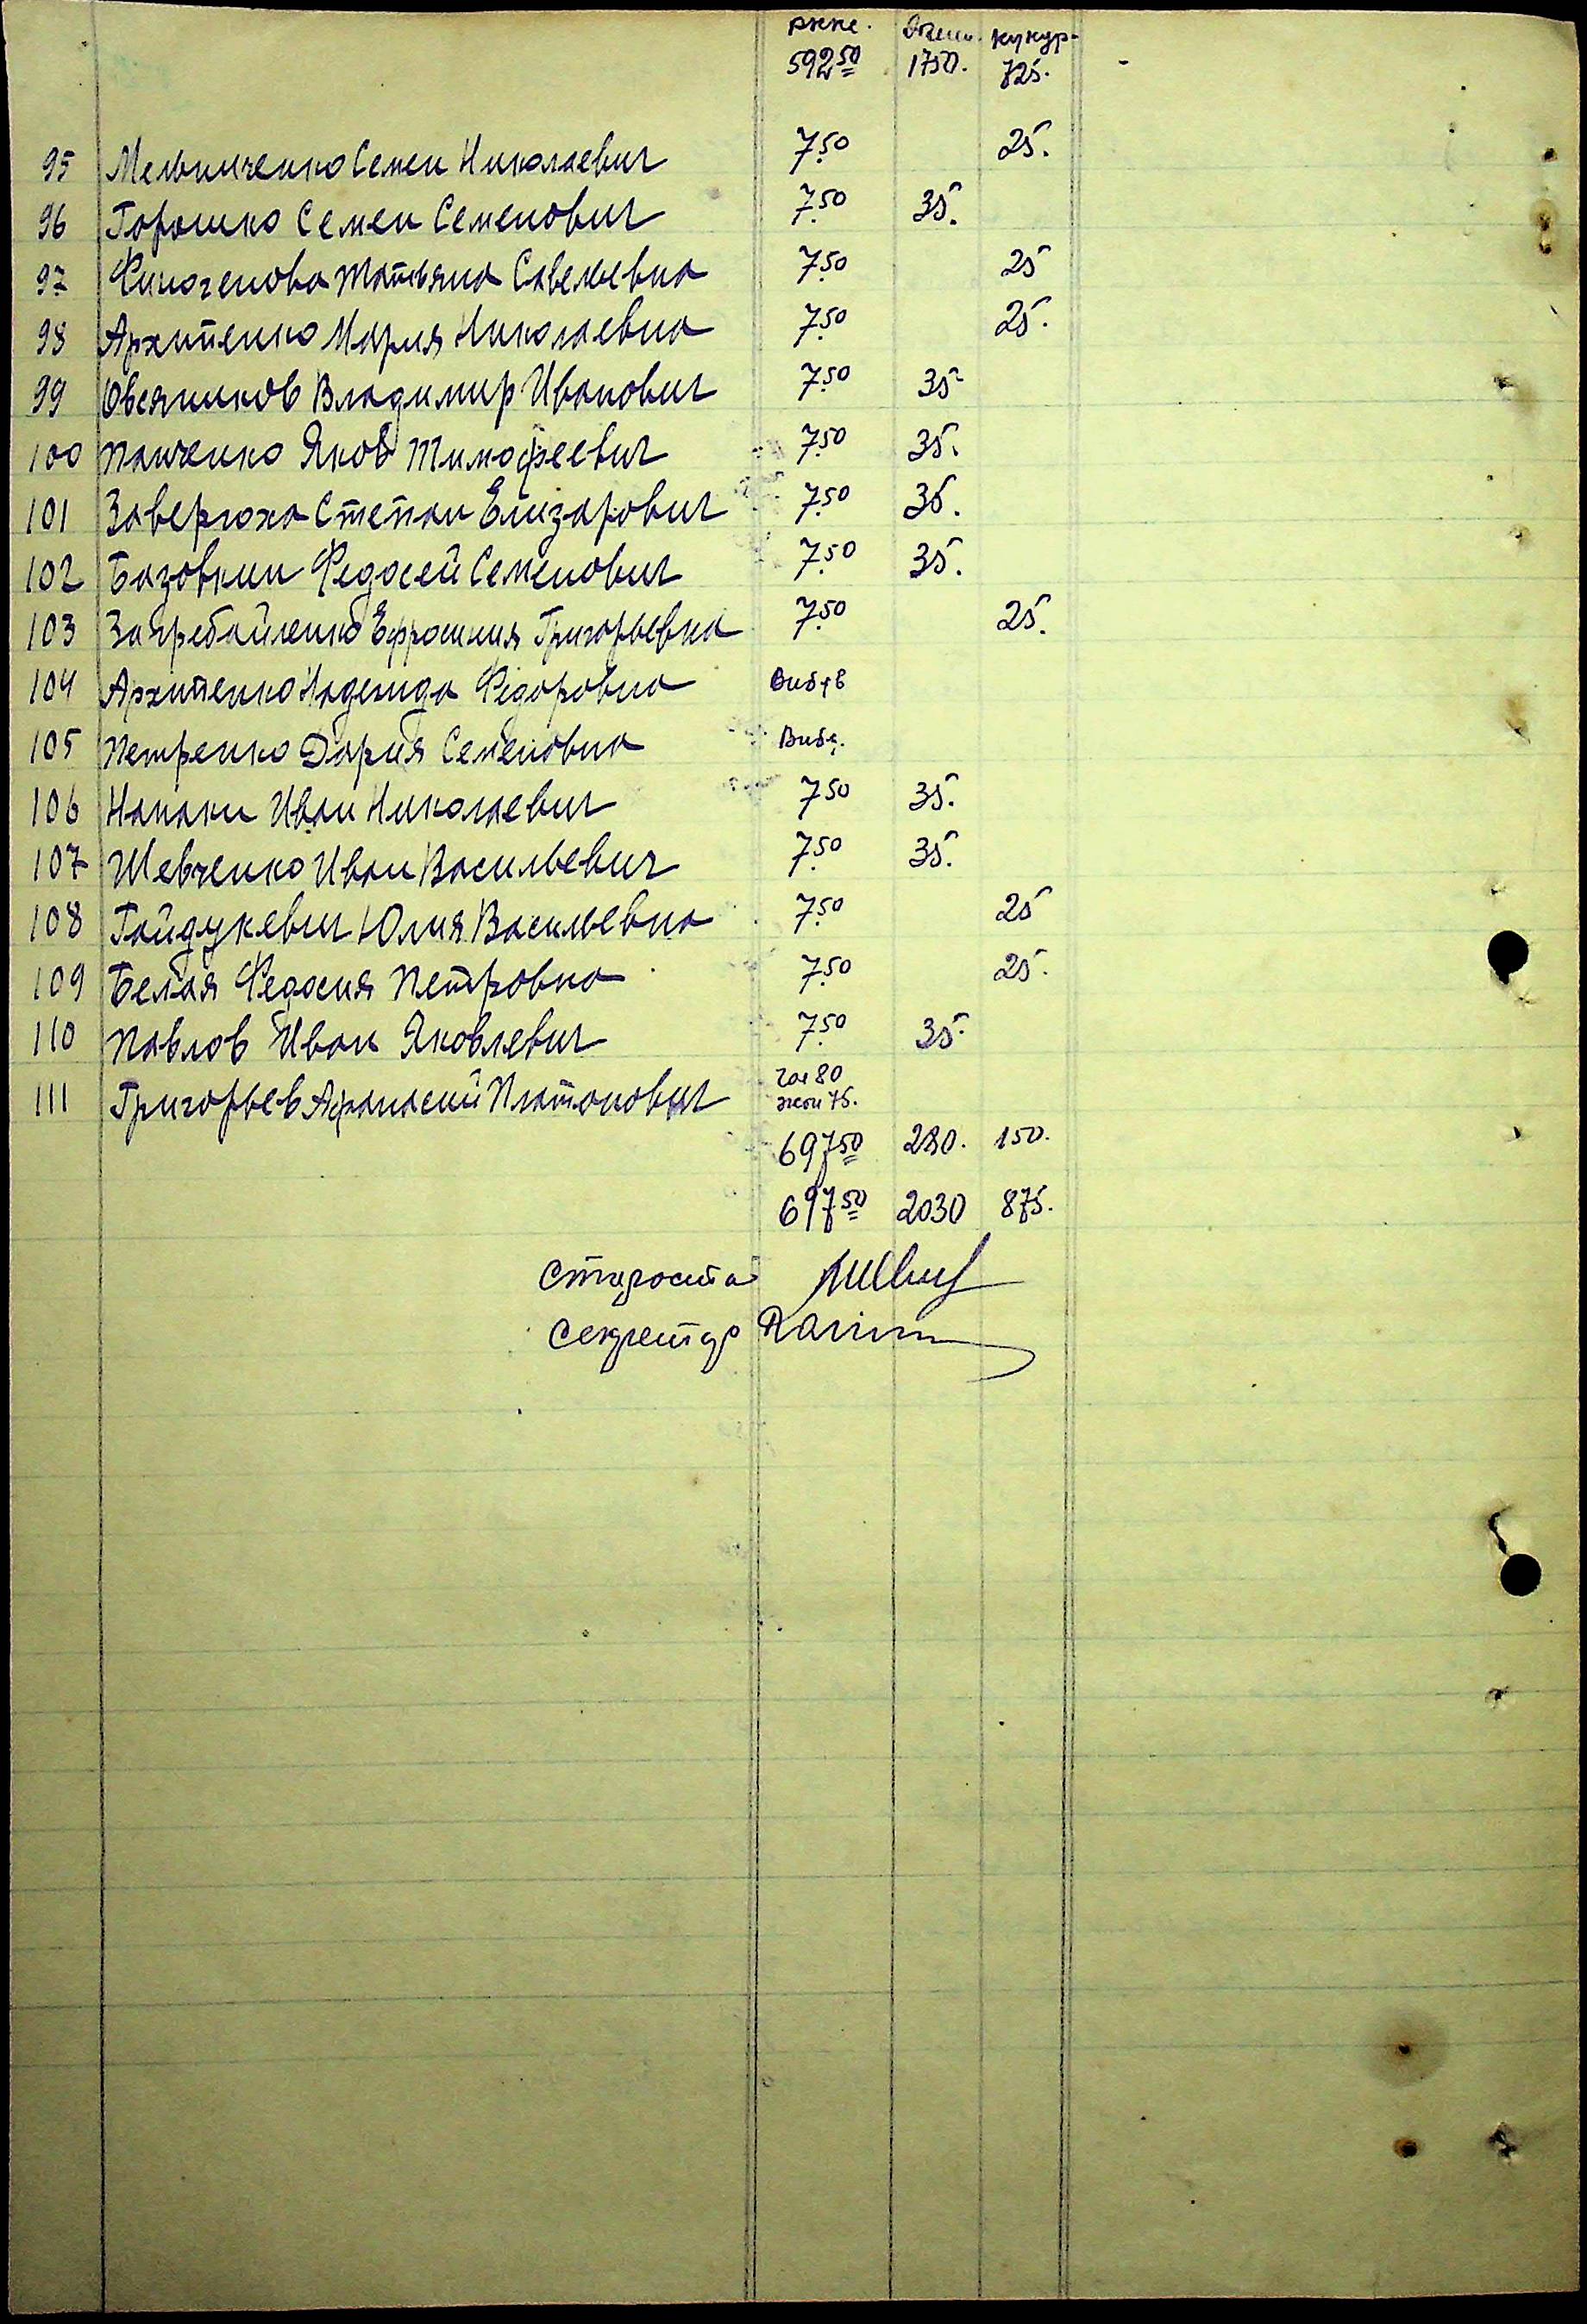 рже. ячм. кукур.
592 50 1750. 725.
95 Мельниченко Семен Николаевич 7.50 25.
96 Горошко Семен Семенович 7.50 35.
97 Финогенова Татьяна Савельевна 7.50 25
98 Архипенко Мария Николаевна 7.50 25.
99 Овсяников Владимир Иванович 7.50 35
100 Панченко Яков Тимофеевич 7.50 35.
101 Заверюха Степан Елизарович 7.50 35.
102 Базовкин Федосей Семенович 7.50 35.
103 Загребайленко Ефросиния Григорьевна 7.50 25.
104 Архипенко Надежда Федоровна Вибув
105 Петренко Дария Семеновна Виб.
106 Напаки Иван Николаевич 7.50 35.
107 Шевченко Иван Васильевич 7.50 35.
108 Гайдукевич Юлия Васильевна 7.50 25
109 Белая Федосия Петровна 7.50 25.
110 Павлов Иван Яковлевич 7.50 35.
111 Григорьев Афанасий Платонович
697 50 280. 150.
697 50 2030 875.
Староста
Секретар